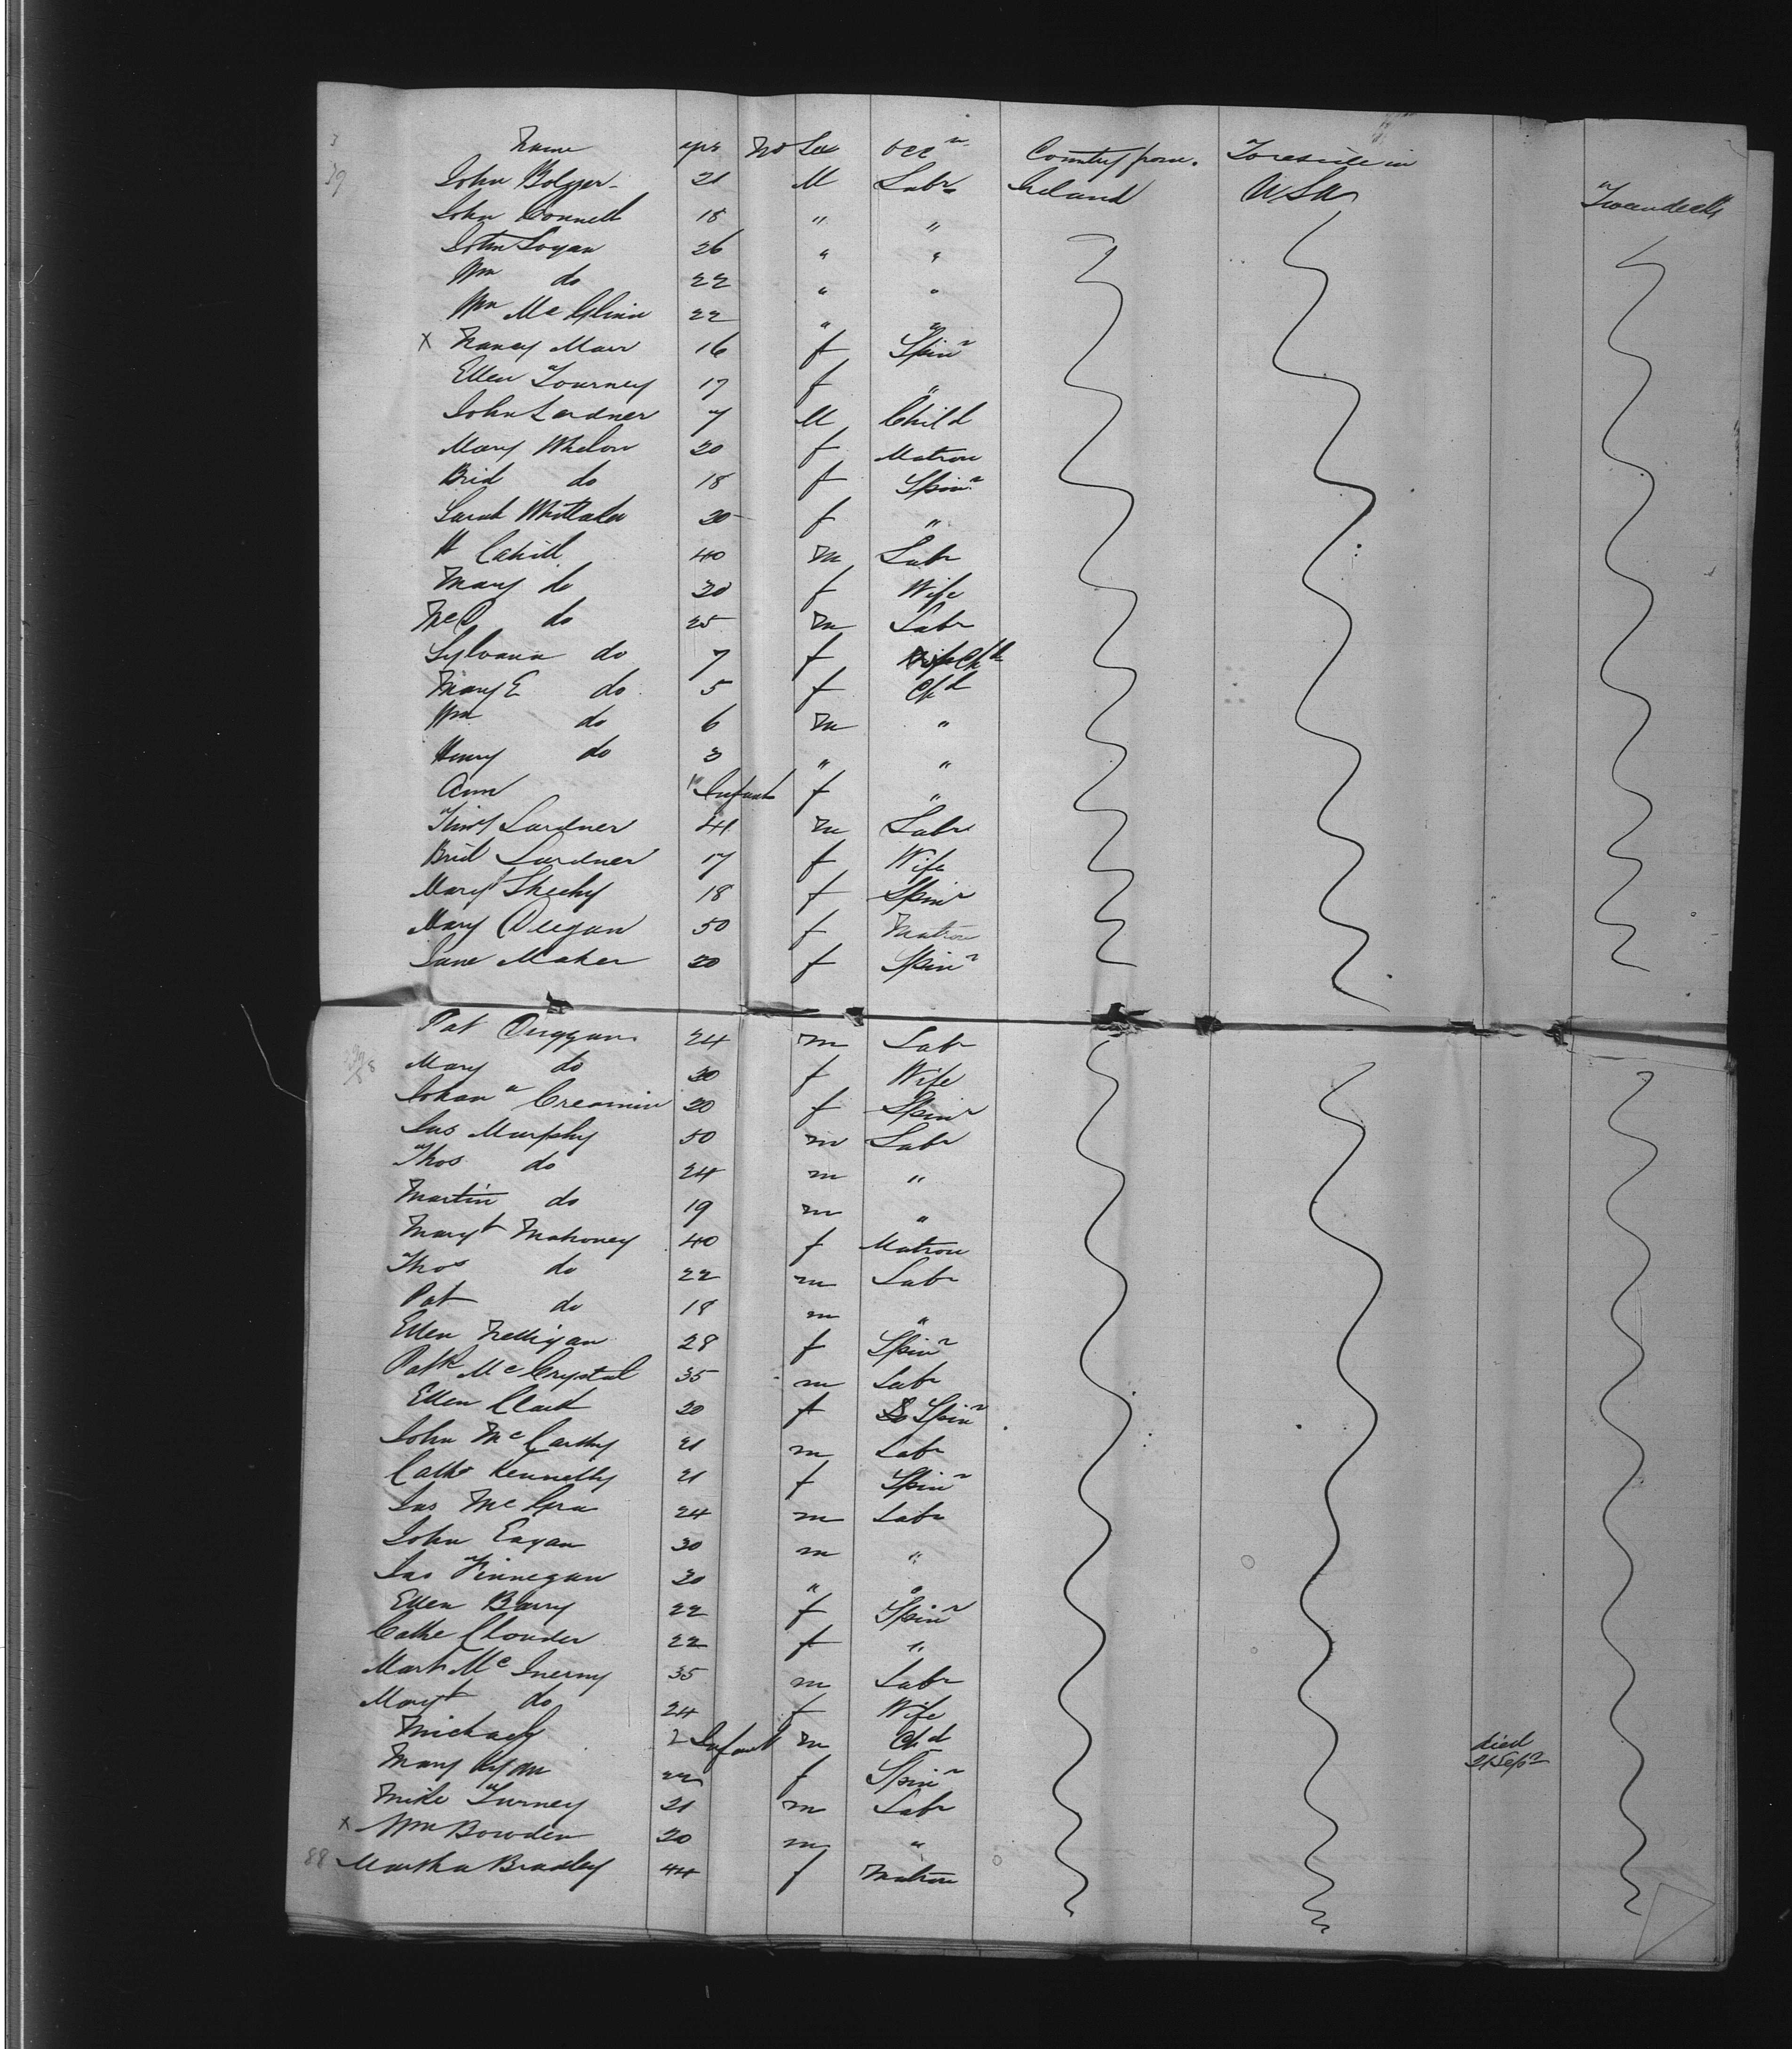 Name age No Sex Occn Country from. To reside in
John Bolger 21 M Labr Ireland USA Tweendecks
John Connell 18 " "
John Logan 26 " "
Wm do 22 " "
Wm McGlinn 22 " "
x Nancy Marr 16 f Spinr
Ellen Tourney 17 f "
John Lardner 7 M Child
Mary Whelon 20 f Matron
Brid do 18 f Spinr
Sarah Whittaker 20 f "
H Cahill 40 m Labr
Mary do 30 f Wife
do 25 m Labr
Sylvana do 7 f Chd
Mary E do 5 f Chd
Wm do 6 m "
Henry do 3 " "
Ann Infant f "
Timy Lardner 41 m Labr
Brid Lardner 17 f Wife
Mary Sheehy 18 f Spinr
Mary Deegan 50 f Matron
Jane Maher 20 f Spinr
Pat Duggan 24 m Labr
Mary do 30 f Wife
Johana Creamin 20 f Spinr
Jas Murphy 50 m Labr
Thos do 24 m "
Martin do 19 m "
Margt Mahoney 40 f Matron
Thos do 22 m Labr
Pat do 18 m "
Ellen Nelligan 28 f Spinr
Patk McCrystal 35 m Labr
Ellen Clark 20 f Spinr
John McCarthy 21 m Labr
Cathe Kennelly 21 f Spinr
Jas McGra 24 m Labr
John Eagan 30 m "
Jas Finnegan 30 " "
Ellen Barry 22 f Spinr
Cathe Clouder 22 f "
Mark McInerny 35 m Labr
Margt do 24 f Wife
Michael Infant m Chd died
Mary Ryan 22 f Spinr 21 Sepr
Mike Turney 21 m Labr
x Wm Bowden 20 m "
88 Martha Bradley 44 f Matron